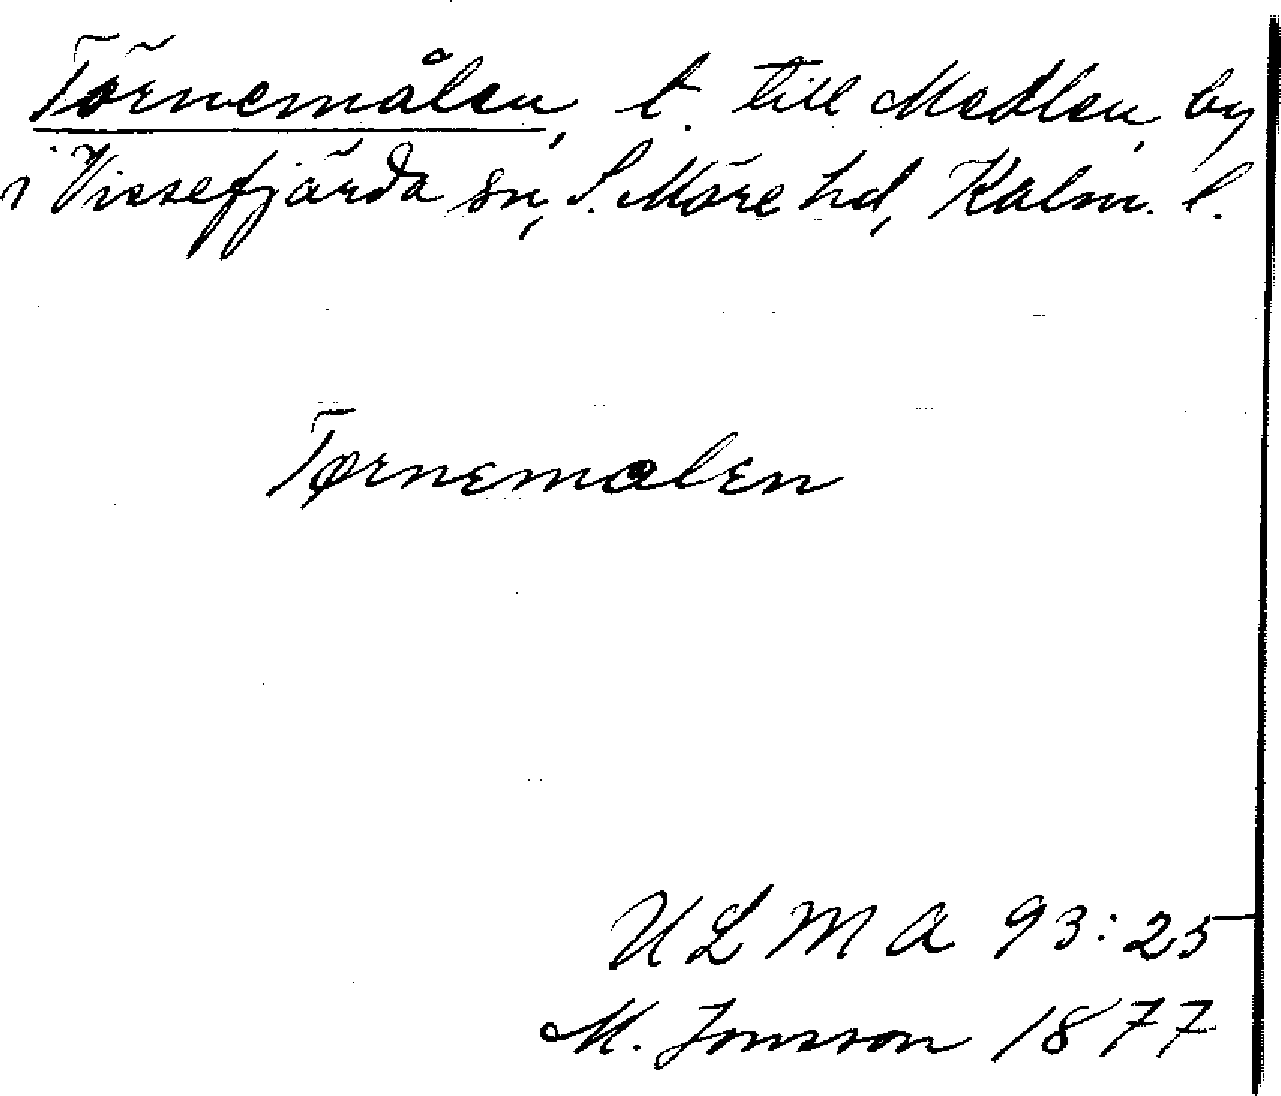 Törnemålen, t. till Medlen, by
i Vissefjärda sn, S. Möre hd, Kalm. l.
Tørnemalen
ULMA 93:25
M. Jonsson 1877